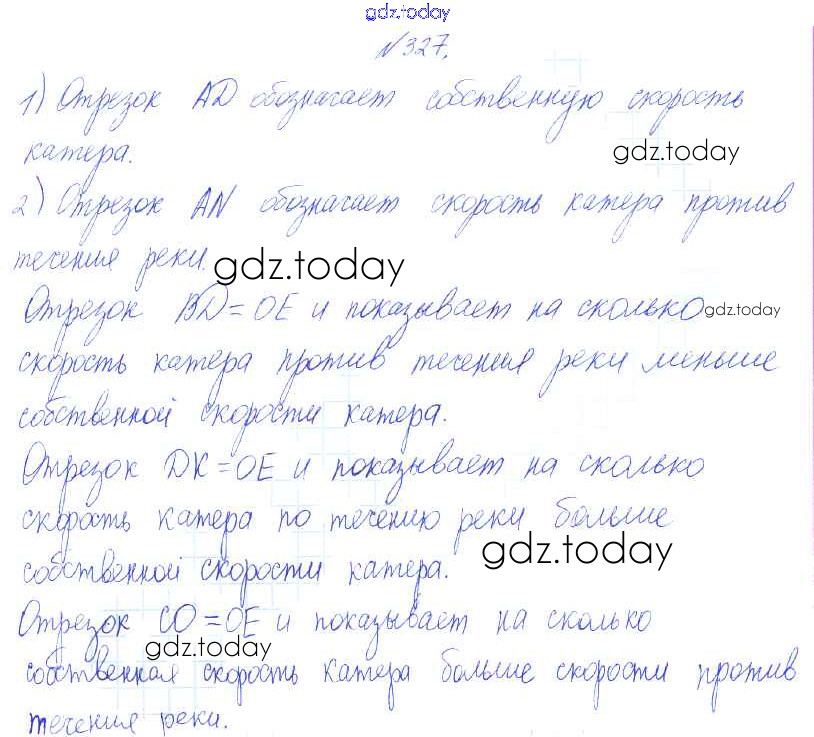 gdz.today
№327.
1) Отрезок AD обозначает собственную скорость
катера.
gdz.today
2) Отрезок AN обозначает скорость катера против
течения реки.
gdz.today
Отрезок BD=OE и показывает на сколько
gdz.today
скорость катера против течения реки меньше
собственной скорости катера.
Отрезок DK=OE и показывает на сколько
скорость катера по течению реки больше
gdz.today
собственной скорости катера.
Отрезок CO=OE и показывает на сколько
gdz.today
собственная скорость катера больше скорости против
течения реки.